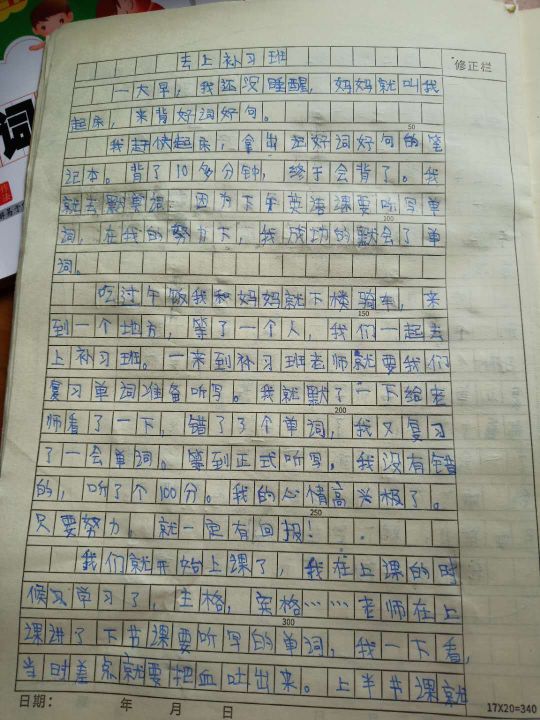 词
去上补习班
修正栏
一大早，我还没睡醒，妈妈就叫我
起床，来背好词好句。
50
我赶快起床，拿出记好词好句的笔
记本。背了10多分钟，终于会背了。我
就去默单词，因为下午英语课要听写单
100
词，在我的努力下，我成功的默会了单
词。
吃过午饭我和妈妈就下楼骑车，来
150
到一个地方，等了一个人，我们一起去
上补习班。一来到补习班老师就要我们
复习单词准备听写。我就默了一下给老
200
师看了一下，错了3个单词，我又复习
了一会单词。等到正式听写。我没有错
的，听了个100分。我的心情高兴极了。
250
只要努力，就一定有回报！
我们就开始上课了，我在上课的时
候又学习了，主格，宾格……老师在上
300
课讲了下节课要听写的单词，我一下看，
当时差点就要把血吐出来。上半节课就
日期： 年 月 日
17X20=340